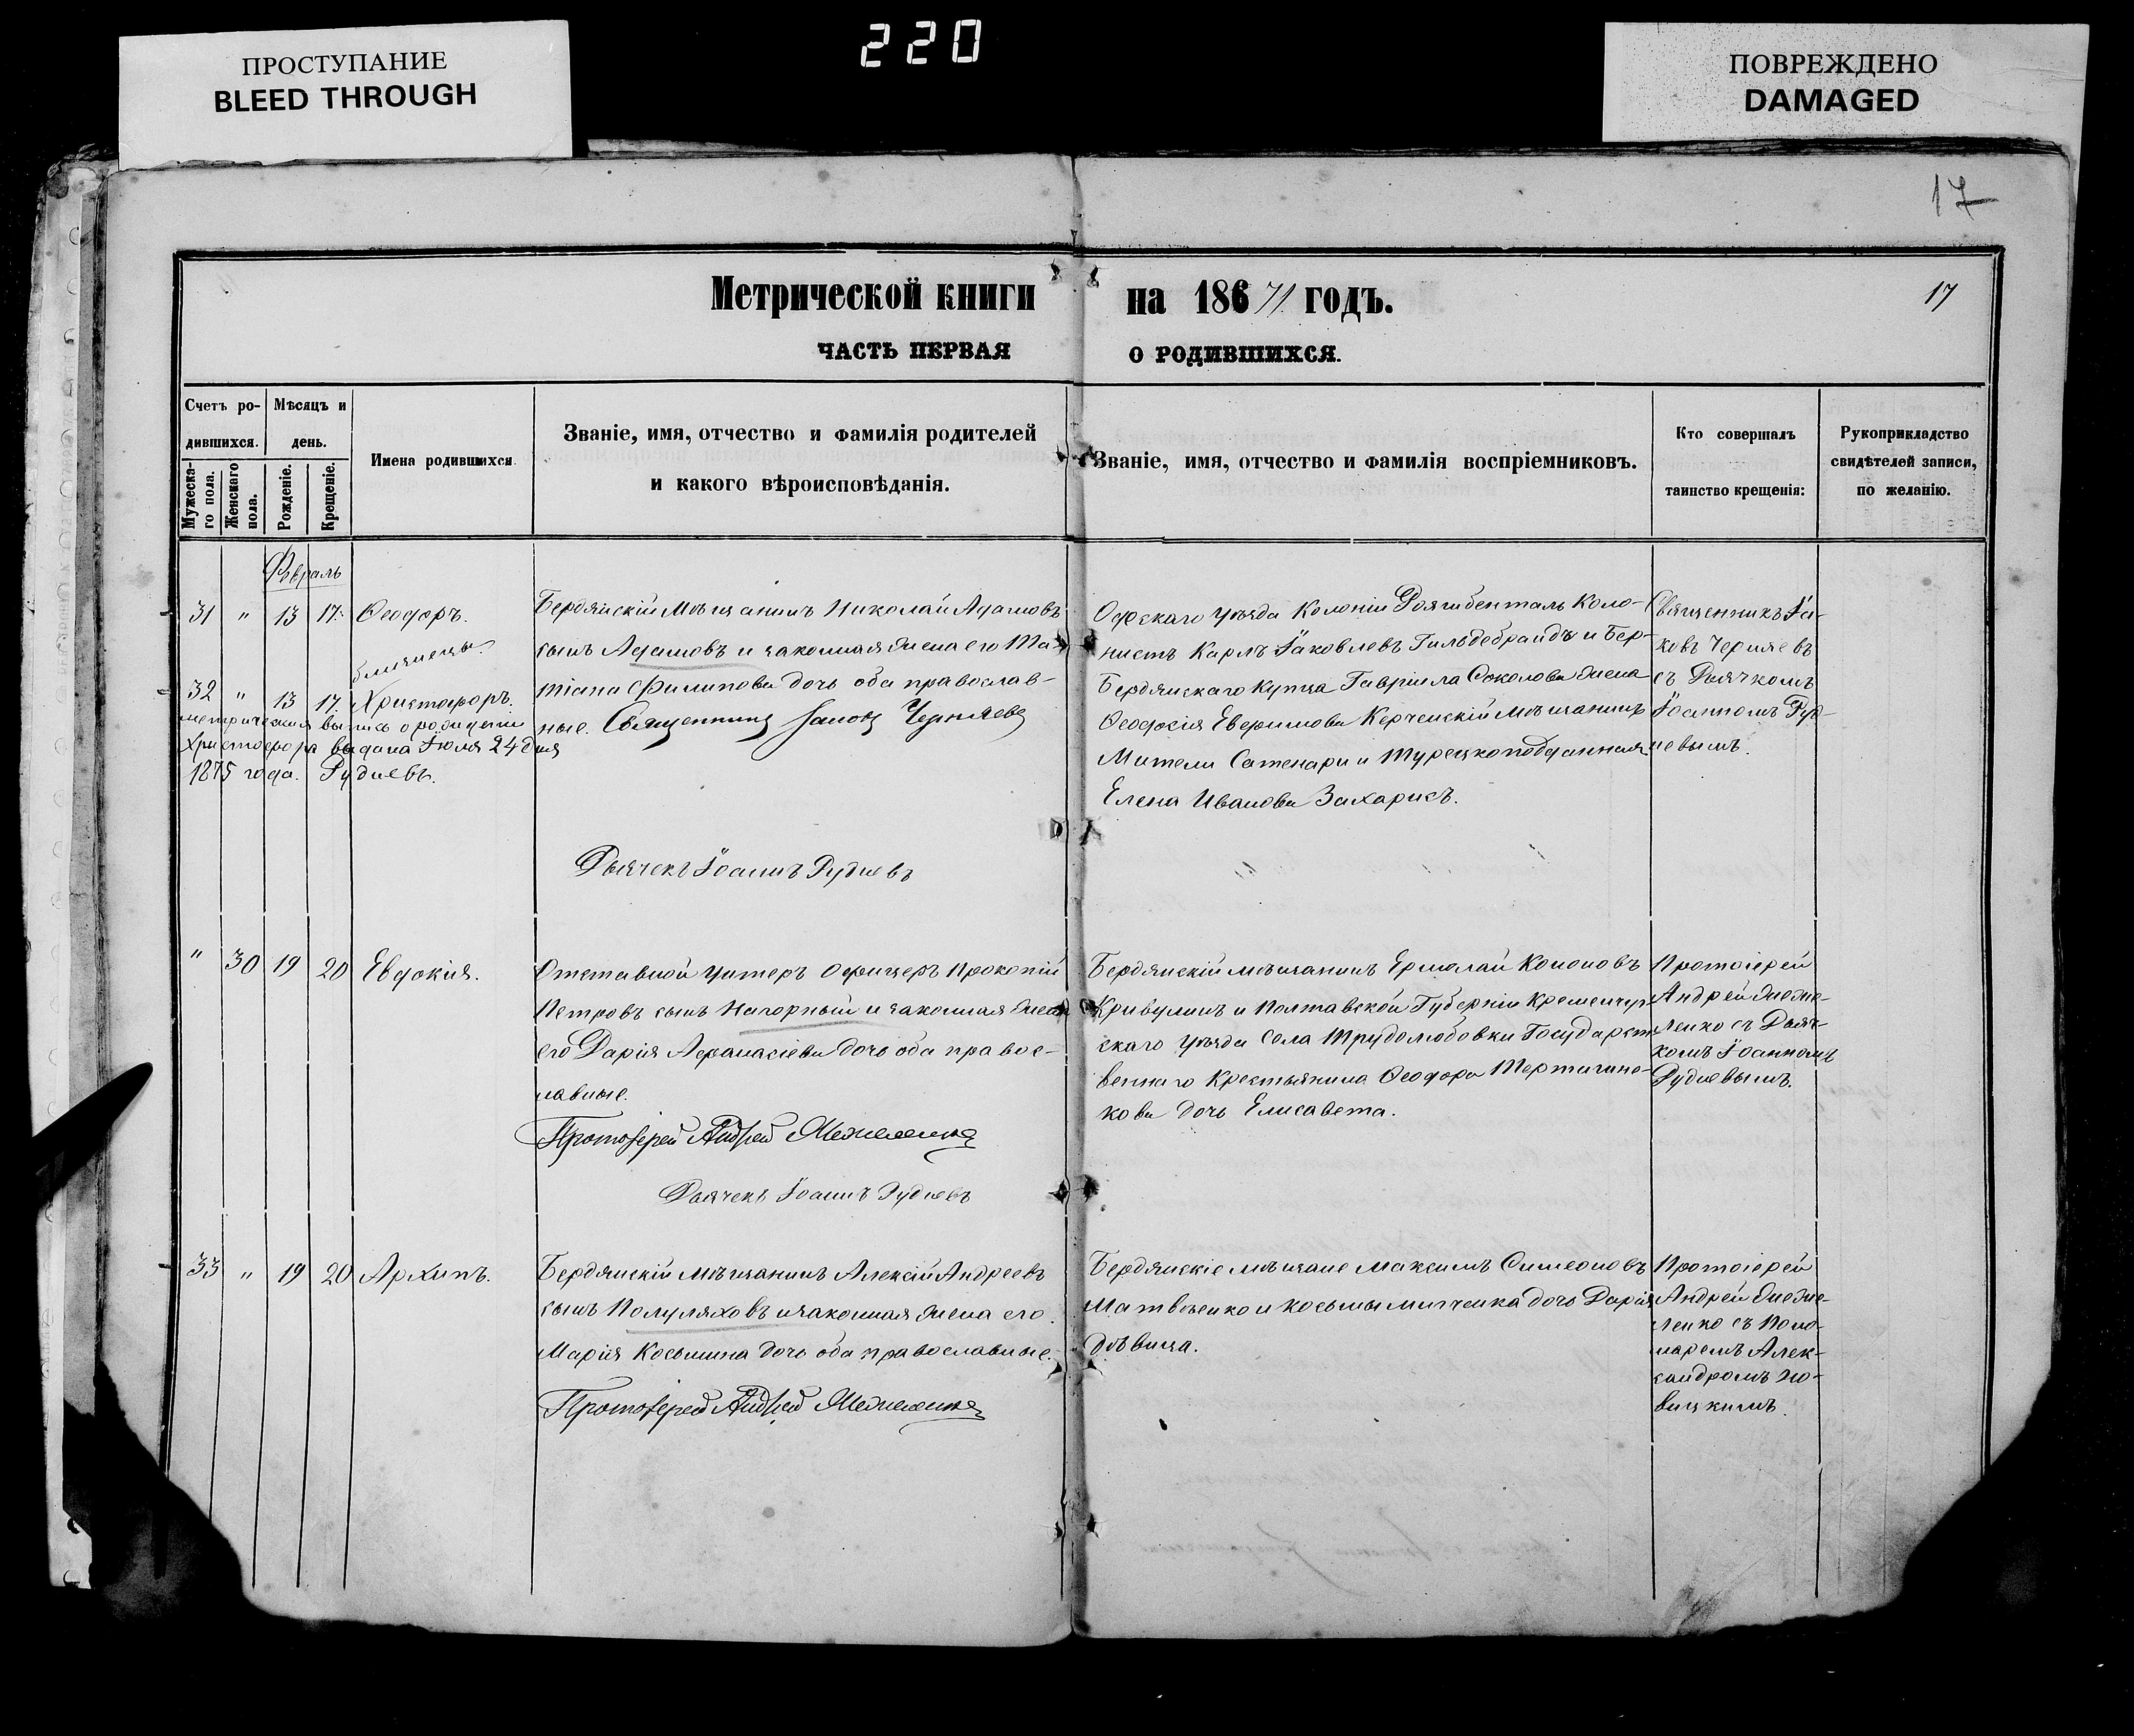 ПРОСТУПАНИЕ
BLEED THROUGH
220
ПОВРЕЖДЕНО
DAMAGED
17
Метрической книги на 18671 годъ.
17
ЧАСТЬ ПЕРВАЯ О РОДИВШИХСЯ.
Счетъ ро-
дившихся.
Мужеска-
го пола.
Женскаго
пола.
Мѣсяцъ и
день.
Рожденіе.
Крещеніе.
Имена родившихся.
Званіе, имя, отчество и фамилія родителей
и какого вѣроисповѣданія.
Званіе, имя, отчество и фамилія воспріемниковъ.
Кто совершалъ
таинство крещенія:
Рукоприкладство
свидѣтелей записи,
по желанію.
Февраль
31 " 13 17. Ѳеодоръ.
близнецы.
32 " 13 17. Христофоръ.
метрическая выпись о рождении
Христофора выдана Іюля 24 дня
1875 года. Рудневъ.
Бердянскій Мѣщанинъ Николай Адамовъ
сынъ Адамовъ и законная жена его Та-
тіана Филипова дочь оба православ-
ные. Священникъ Іаковъ Черняевъ
Дьячекъ Іоаннъ Рудневъ
уѣзда Колоніи Коло-
нистъ Карлъ Іаковлевъ Гильдебрандъ и Бер-
Бердянскаго Купца Гавріила Соколова жена
Ѳеодосія Ефимова Керченскій мѣщанинъ
Сатенари и Турецкоподданная
Елена Иванова Захарисъ.
Священникъ Іа-
ковъ Черняевъ
съ Дьячкомъ
Іоанномъ Руд-
невымъ.
" 30 19 20 Евдокія.
Отставной Унтеръ Офицеръ Прокопій
Петровъ сынъ Нагорный и законная жена
его Дарія Афанасіева дочь оба правос-
лавные.
Протоіерей Андрей Межеленко
Дьячекъ Іоаннъ Рудневъ
Бердянскій мѣщанинъ Ермолай Кононовъ
Кривулинъ и Полтавской Губерніи Кременчуг-
скаго уѣзда Села Трудолюбовки Государст-
веннаго Крестьянина Ѳеодора
кова дочь Елисавета.
Протоіерей
Андрей Меже-
ленко съ Дьяч-
комъ Іоанномъ
Рудневымъ.
33 " 19 20 Архипъ.
Бердянскій Мѣщанинъ Алексій Андреевъ
сынъ Полуляховъ и законная жена его
Марія Косьмина дочь оба православные.
Протоіерей Андрей Межеленко
Бердянскіе мѣщане Максимъ Симеоновъ
Матвѣенко и Косьмы Митченка дочь Дарія
дѣвица.
Протоіерей
Андрей Меже-
ленко съ Поно-
маремъ Алек-
сандромъ Но-
вицкимъ.